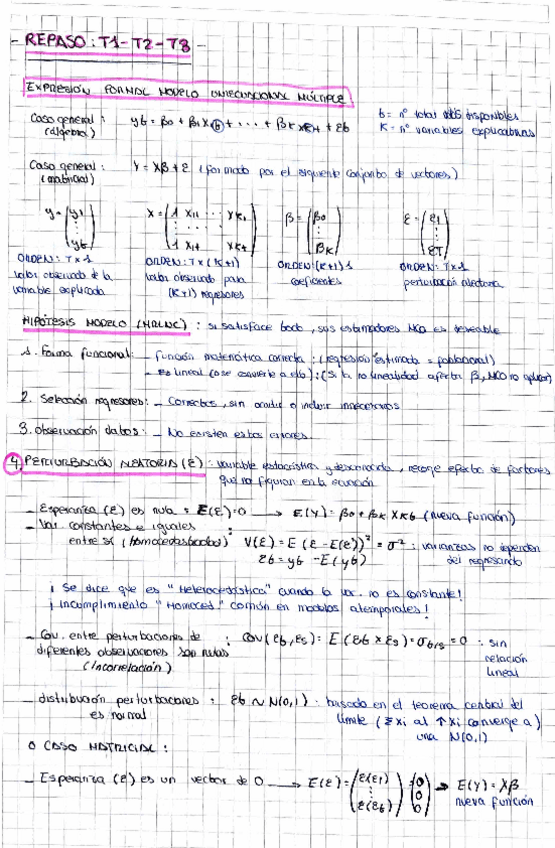 - REPASO: T1-T2-T8 -
EXPRESIÓN FORMAL MODELO UNIECUACIONAL MÚLTIPLE:
Caso general: yt = β0 + β1 X1t + ... + βK XKt + εt
(álgebra)
t = nº total obs disponibles
K = nº variables explicativas
Caso general: Y = Xβ + ε (formado por el siguiente conjunto de vectores)
(matricial)
y = (y1 ⋮ yt) X = (1 X11 ... XK1 ⋮ 1 X1t ... XKt) β = (β0 ⋮ βK) ε = (ε1 ⋮ εT)
ORDEN: T x 1 ORDEN: T x (K+1) ORDEN: (K+1) 1 ORDEN: T x 1
valor observado de la valor observado para coeficientes perturbación aleatoria
variable explicada (K+1) regresores
HIPÓTESIS MODELO (MRLNC): si satisface todo, sus estimadores MCO es deseable
1. Forma funcional: - función matemática correcta: (regresión estimada = poblacional)
- es lineal (o se convierte a ello): (Si la no linealidad afecta β, MCO no aplicar)
2. Selección regresores: - Correctos, sin omitir o incluir innecesarios
3. observación datos: - No existen estos errores.
4. PERTURBACIÓN ALEATORIA (ε): variable estocástica y desconocida, recoge efectos de factores
que no figuran en la ecuación
- Esperanza (ε) es nula = E(ε)=0 → E(Y) = β0 + βK XKt (nueva función)
- Var. constantes e iguales
entre sí (Homocedasticidad): V(ε) = E(ε - E(ε))² = σ² : varianzas no dependen
del regresando
εt = yt - E(yt)
¡ Se dice que es "Heterocedástica" cuando la var. no es constante!
¡ incumplimiento "Homoced." común en modelos atemporales!
- Cov. entre perturbaciones de : Cov(εt, εs) = E(εt x εs) = σt,s = 0 : sin
diferentes observaciones son nulas relación
(Incorrelación) lineal
- distribución perturbaciones : εt ~ N(0,1) : basado en el teorema central del
es normal límite (Σxi al ↑xi converge a)
una N(0,1)
o CASO MATRICIAL:
- Esperanza (ε) es un vector de 0 → E(ε) = (E(ε1) ⋮ E(εt)) = (0 0 0) → E(Y) = Xβ
nueva función